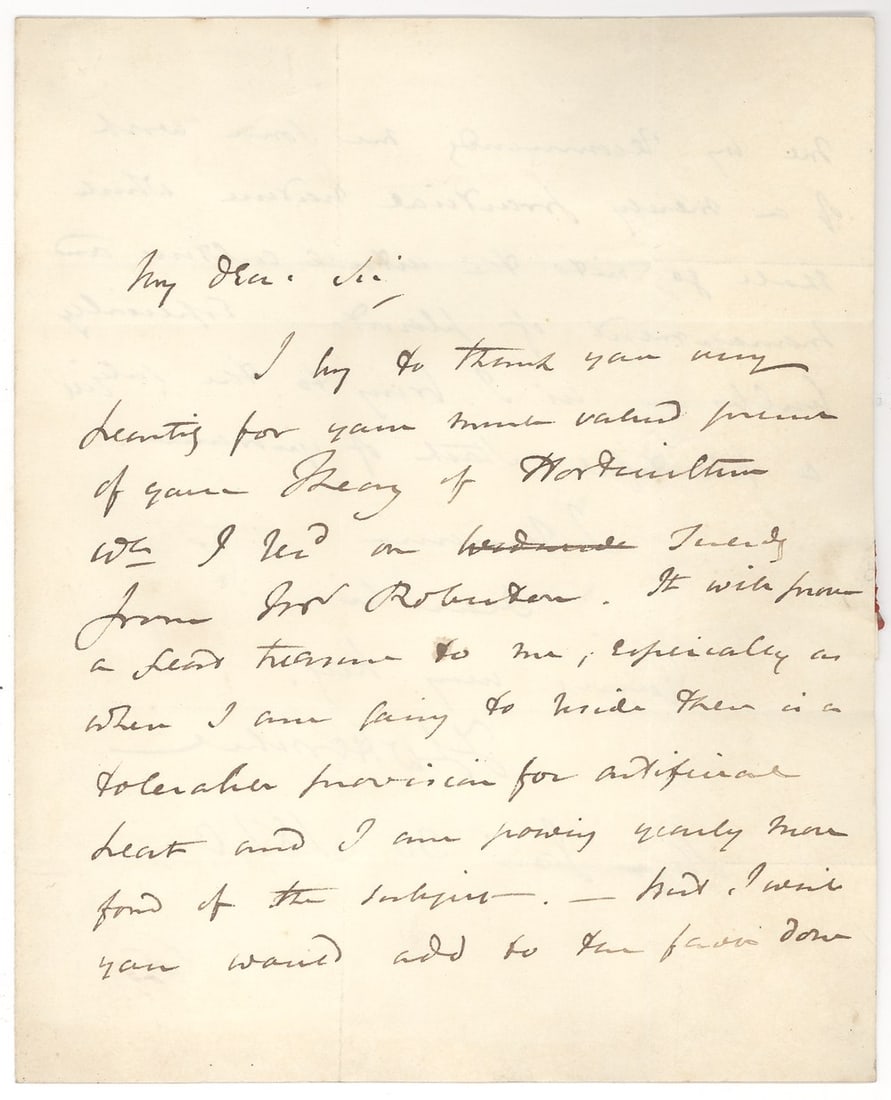 My dear Sir,
I beg to thank you very
heartily for your much valued present
of your Theory of Horticulture
wch I recd on Wednesde Tuesday
from Mr Robertson. It will prove
a great treasure to me; especially as
where I am going to reside there is a
tolerable provision for artificial
heat and I am growing yearly more
fond of the subject. — But I wish
you would add to the favor done